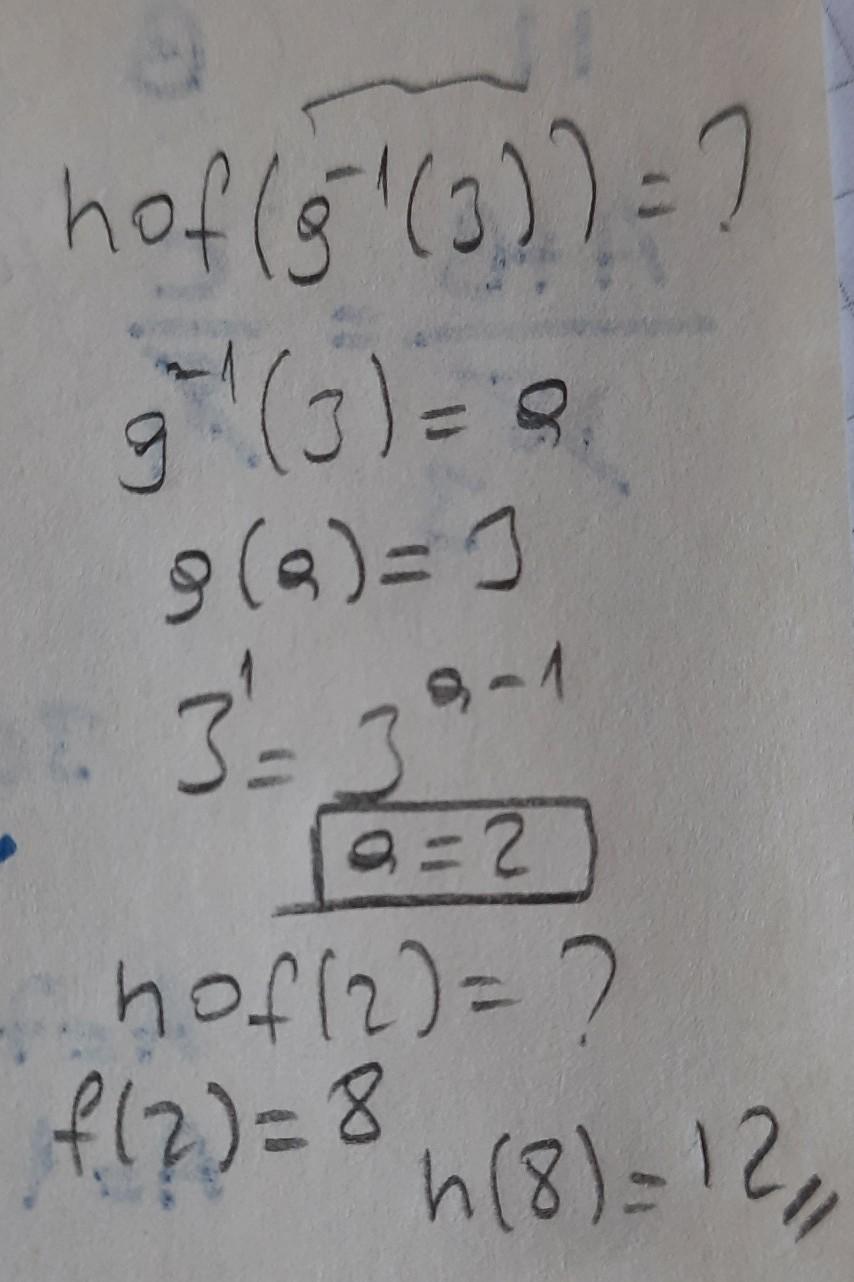 hof(g⁻¹(3)) = ?
g⁻¹(3) = a
g(a) = 3
3¹ = 3ᵃ⁻¹
a = 2
hof(2) = ?
f(2) = 8
h(8) = 12,,